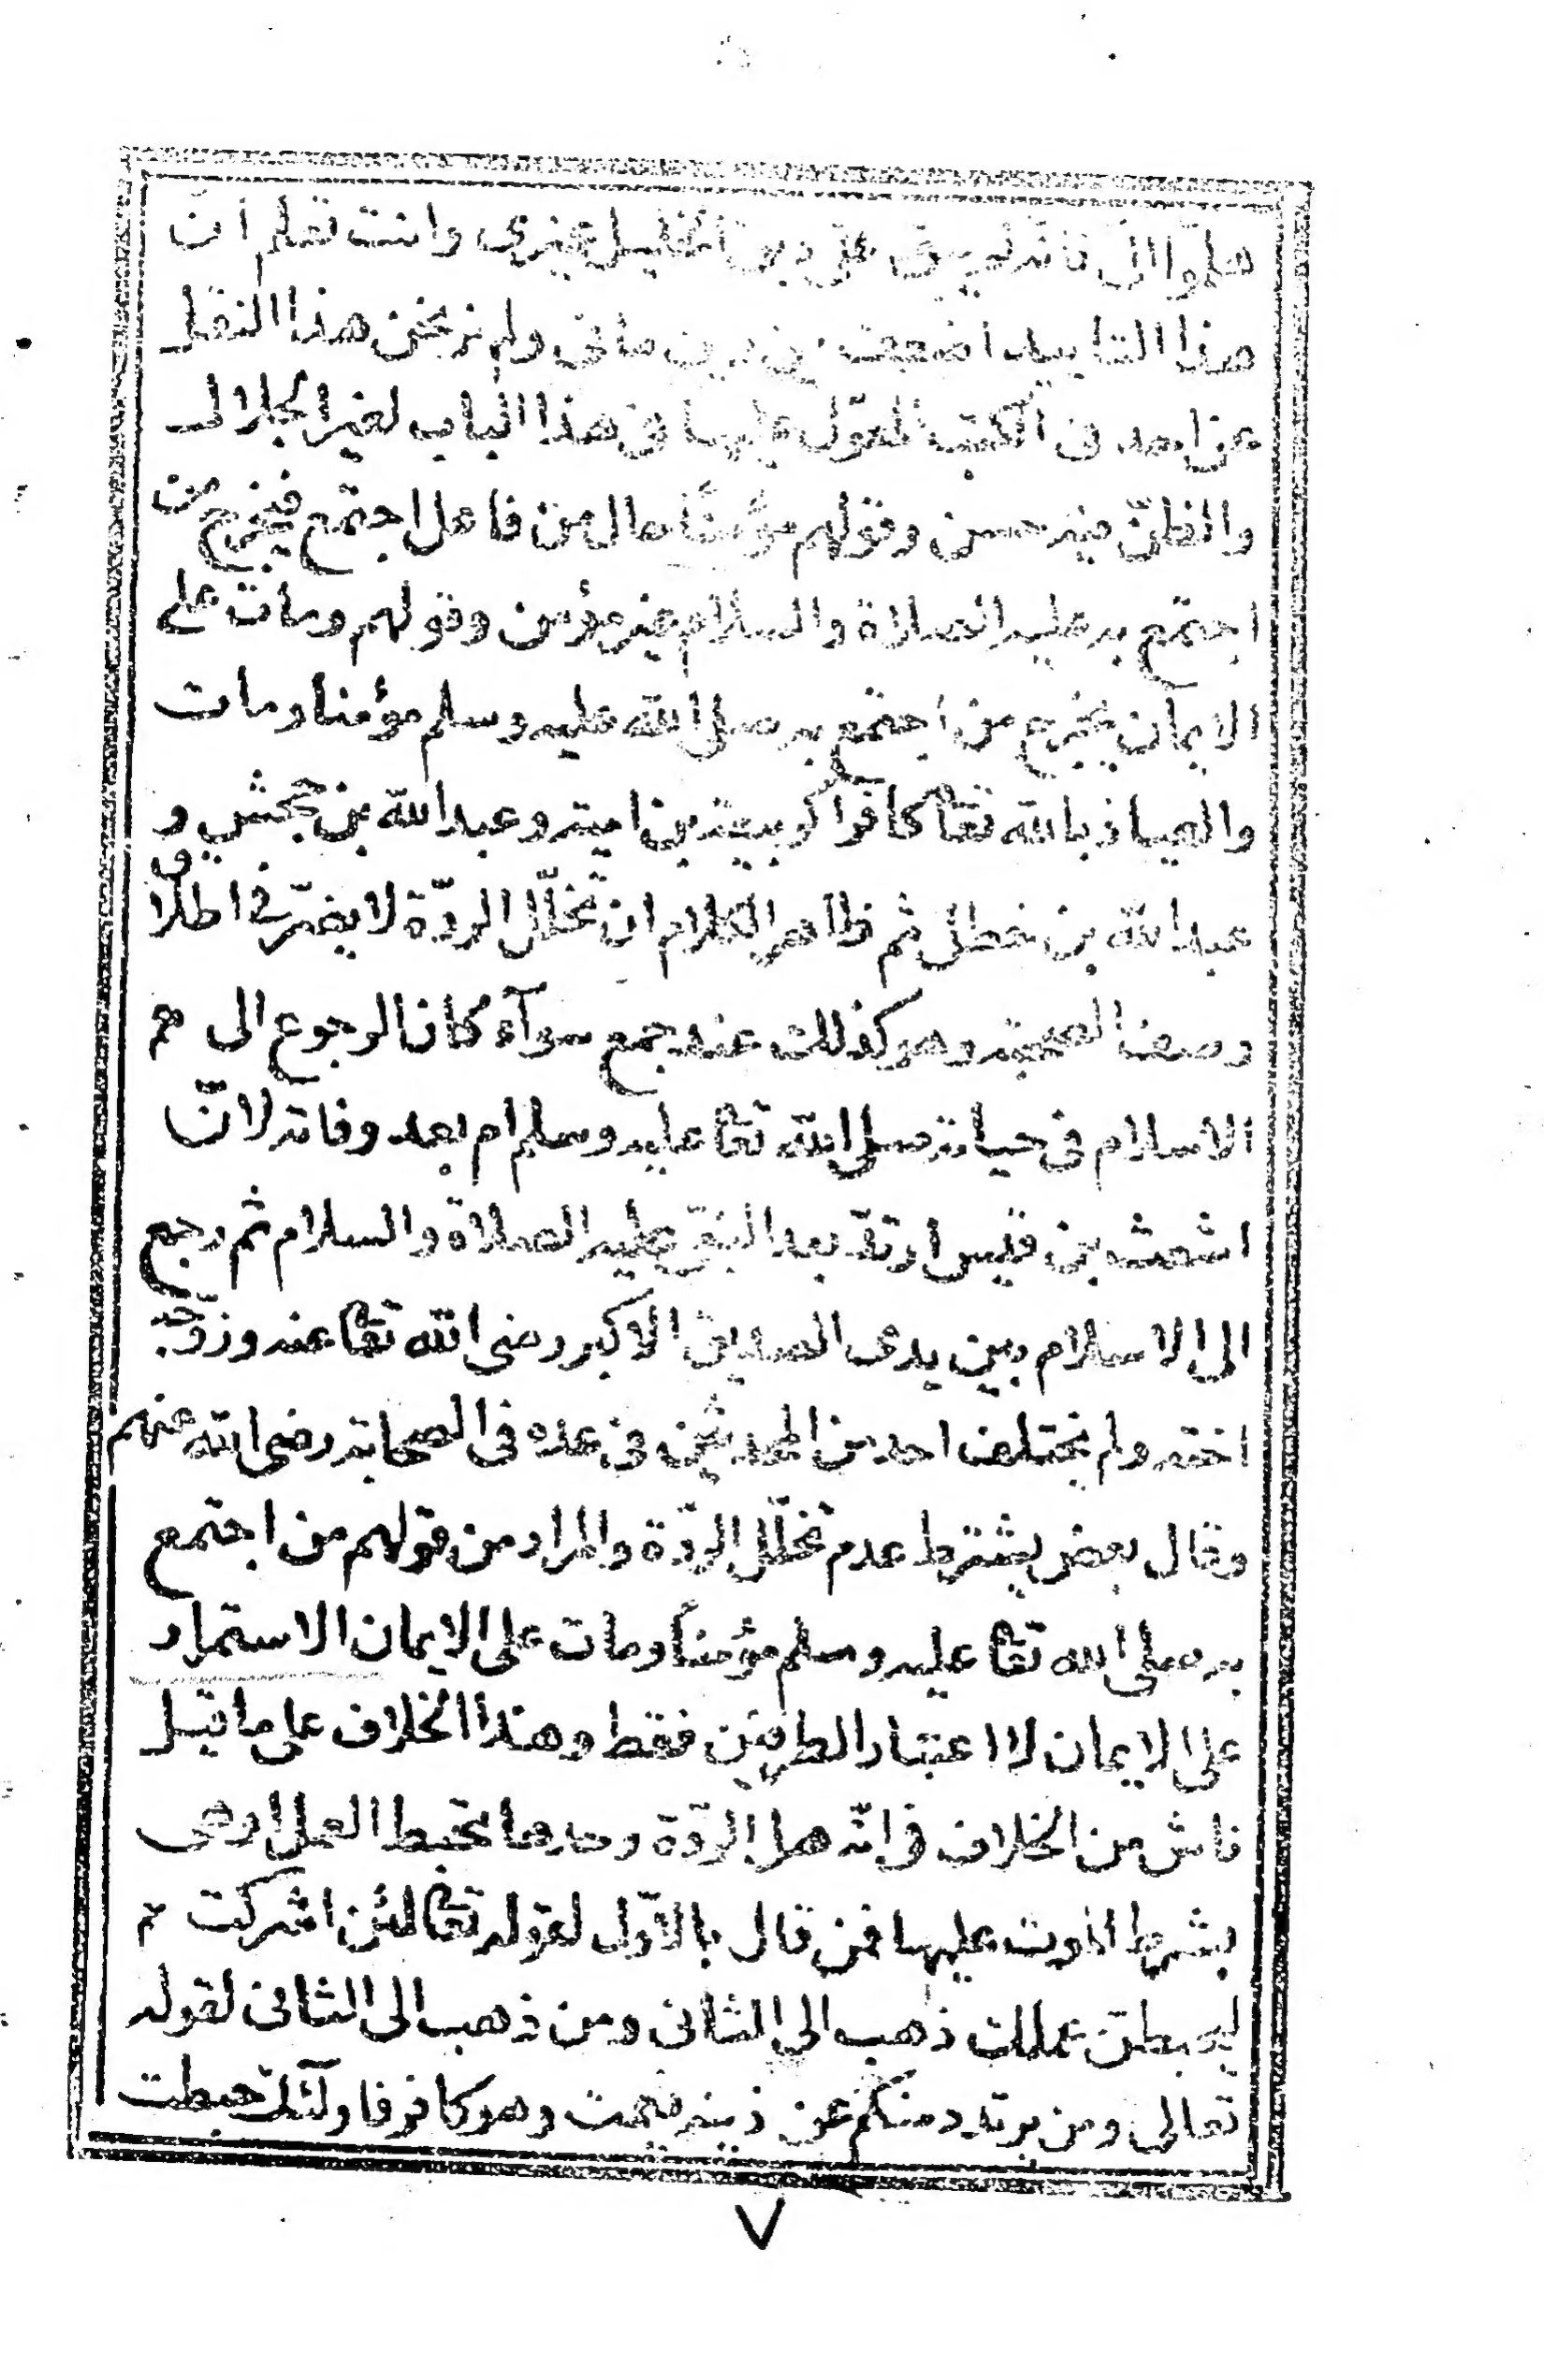 هلموا الى فانه لم يبق على دين الخليل غيرى وانت تعلم ان
هذا التاييد اضعف من دين مانى ولم نر نحن هذا النقل
عن احد فى الكتب المعول عليها فى هذا الباب لغير الجلال
والظن فيه حسن وقولهم مؤمنا حال من فاعل اجتمع فيخرج من
اجتمع به عليه الصلاة والسلام غير مؤمن وقولهم ومات على
الايمان يخرج من اجتمع به صلى الله عليه وسلم مؤمنا ومات
والعياذ بالله تعا كافرا كربيعة بن امية وعبد الله بن جحش و
عبد الله بن خطل ثم ظاهر الكلام ان تخلّل الردّة لا يضرّ فى اطلاق
وصف الصحبة وهو كذلك عند جمع سوآء كان الرجوع الى
الاسلام فى حياته صلى الله تعا عليه وسلم ام بعد وفاته لانّ
اشعث بن قيس ارتدّ بعد النبىّ عليه الصلاة والسلام ثم رجع
الى الاسلام بين يدى الصديق الاكبر رضى الله تعا عنه وزوّجه
اخته ولم يختلف احد من المحدثين فى عده فى الصحابة رضى الله عنهم
وقال بعض يشترط عدم تخلّل الردّة والمراد من قولهم من اجتمع
به صلى الله تعا عليه وسلم مؤمنًا ومات على الايمان الاستمرار
على الايمان لا اعتبار الطرفين فقط وهذا الخلاف على ما قيل
ناش من الخلاف فى انّه هل الردّة وحدها تحبط العمل او هى
بشرط الموت عليها فمن قال بالاوّل لقوله تعا لئن اشركت
ليحبطن عملك ذهب الى الثانى ومن ذهب الى الثانى لقوله
تعالى ومن يرتدد منكم عن دينه فيمت وهو كافر فاولئك حبطت
٧